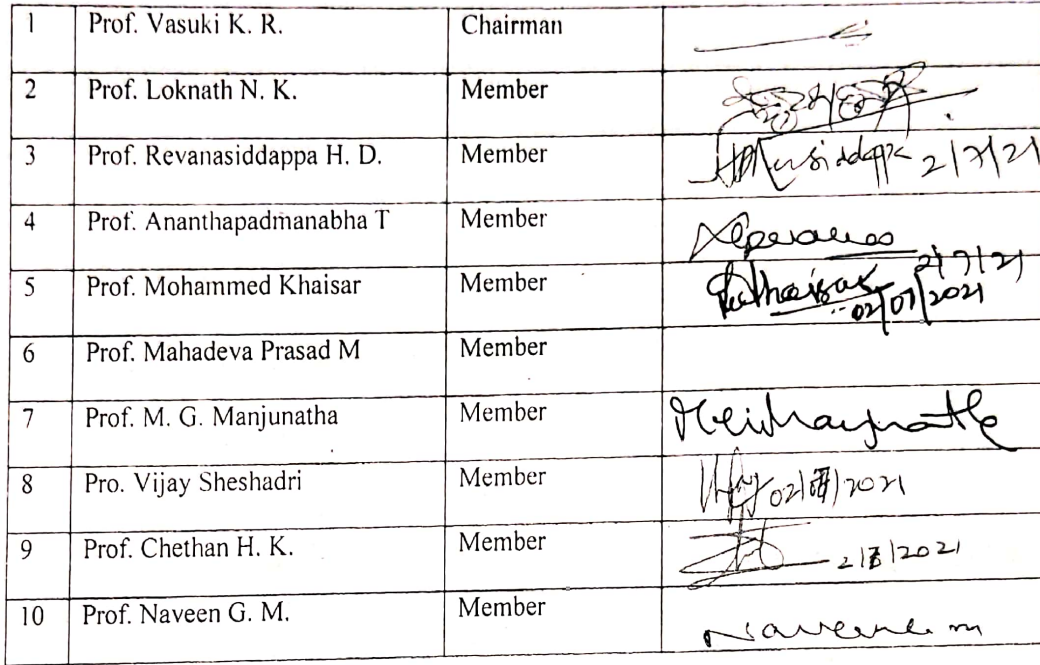 1 Prof. Vasuki K. R. Chairman
2 Prof. Loknath N. K. Member
3 Prof. Revanasiddappa H. D. Member 2/7/21
4 Prof. Ananthapadmanabha T Member
2/7/21
5 Prof. Mohammed Khaisar Member
02/07/2021
6 Prof. Mahadeva Prasad M Member
7 Prof. M. G. Manjunatha Member
8 Pro. Vijay Sheshadri Member 02/07/2021
9 Prof. Chethan H. K. Member 2/7/2021
10 Prof. Naveen G. M. Member